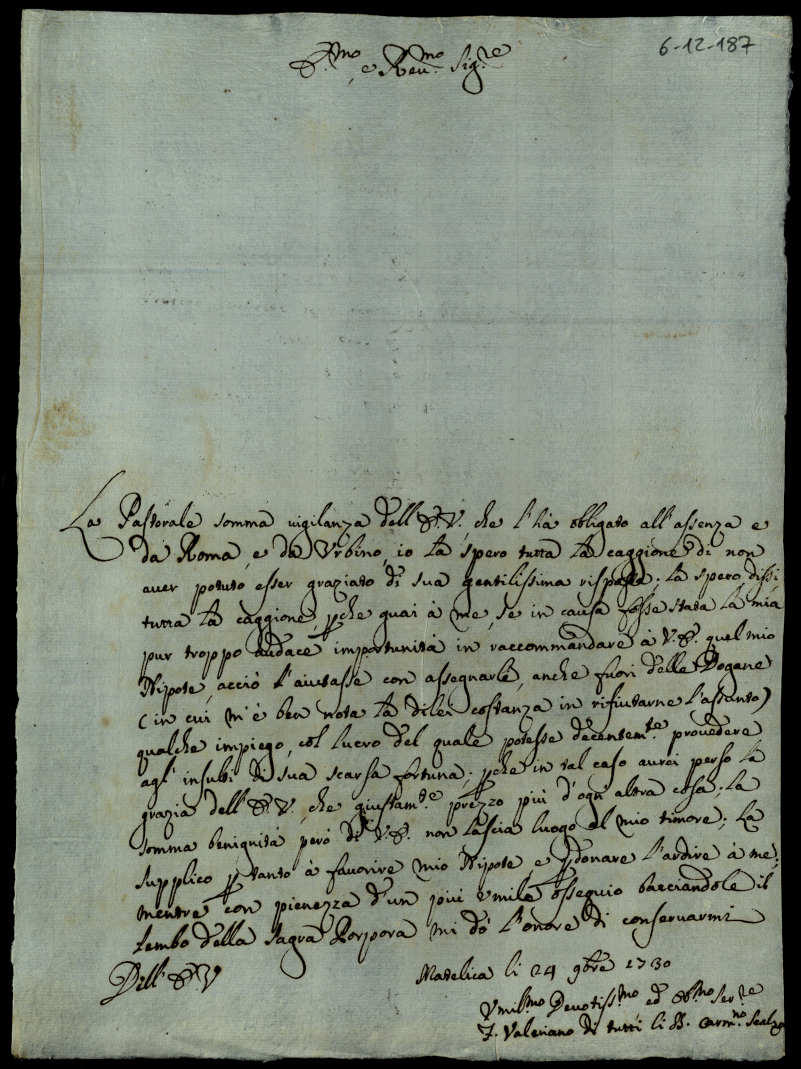 6-12-187
E.mo
e Reu.mo Sig.re
La Pastorale somma uigilanza dell'E.V., che l'hà obligato all'assenza e
da Roma, e da Urbino, io la spero tutta la caggione di non
auer potuto esser graziato di sua gentilissima risposta; la spero, dissi,
tutta la caggione, pche guai à me, se in causa fosse stata la mia
pur troppo audace importunità in raccommandare à V.E. quel mio
Nipote, acciò l'aiutasse con assegnarle, anche fuori delle Dogane
(in cui m'è ben nota la dilei costanza in rifiutarne l'assunto)
qualche impiego, col lucro del quale potesse decentem.te prouedere
agl'insulti di sua scarsa fortuna; pche in tal caso aurei perso la
grazia dell'E.V., che giustam.te prezzo più d'ogn'altra cosa; La
somma benignità però di V.E. non lascia luogo al mio timore; La
supplico p tanto à fauorire mio Nipote e pdonare l'ardire à me;
mentre con pienezza d'un più umile ossequio bacciandole il
lembo della sagra Porpora mi dò l'onore di conseruarmi
Dell'E.V
Matelica li 24 9bre 1730
Vmil.mo Deuotiss.mo ed Ob.mo Ser.re
F. Valeriano di tutti li SS. Carm.no Scalzo